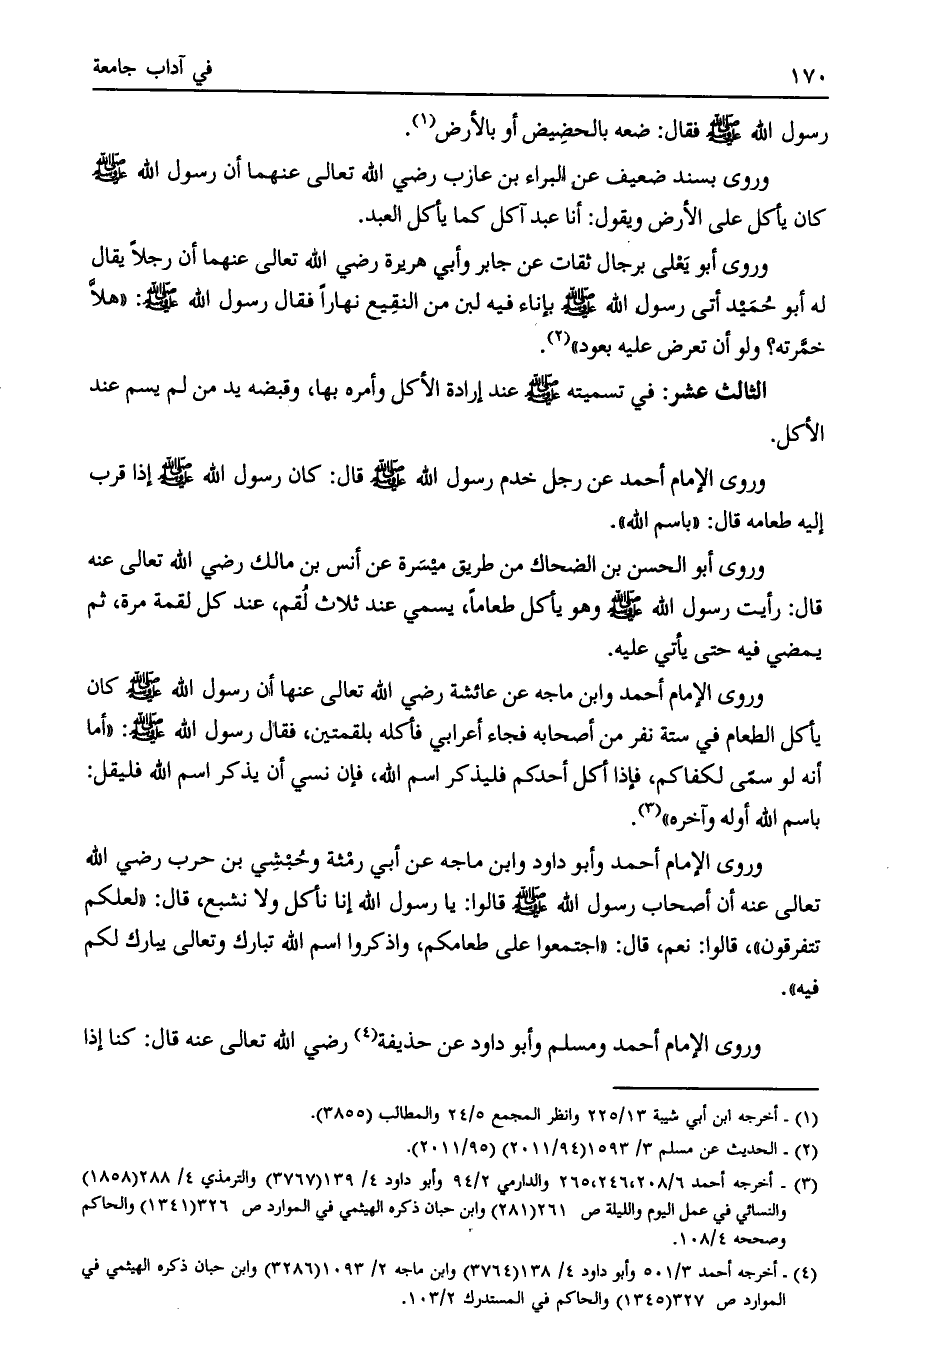 ١٧٠ في آداب جامعة
رسول الله ﷺ فقال: ضعه بالحضِيض أو بالأرض(١).
وروى بسند ضعيف عن البراء بن عازب رضي الله تعالى عنهما أن رسول الله ﷺ
كان يأكل على الأرض ويقول: أنا عبد آكل كما يأكل العبد.
وروى أبو يَعْلى برجال ثقات عن جابر وأبي هريرة رضي الله تعالى عنهما أن رجلاً يقال
له أبو حُمَيْد أتى رسول الله ﷺ بإناء فيه لبن من النقيع نهاراً فقال رسول الله ﷺ: «هلاَّ
خمَّرته؟ ولو أن تعرض عليه بعود»(٢).
الثالث عشر: في تسميته ﷺ عند إرادة الأكل وأمره بها، وقبضه يد من لم يسم عند
الأكل.
وروى الإمام أحمد عن رجل خدم رسول الله ﷺ قال: كان رسول الله ﷺ إذا قرب
إليه طعامه قال: «باسم الله».
وروى أبو الحسن بن الضحاك من طريق ميْسَرة عن أنس بن مالك رضي الله تعالى عنه
قال: رأيت رسول الله ﷺ وهو يأكل طعاماً، يسمي عند ثلاث لُقم، عند كل لقمة مرة، ثم
يمضي فيه حتى يأتي عليه.
وروى الإمام أحمد وابن ماجه عن عائشة رضي الله تعالى عنها أن رسول الله ﷺ كان
يأكل الطعام في ستة نفر من أصحابه فجاء أعرابي فأكله بلقمتين، فقال رسول الله ﷺ: «أما
أنه لو سمّى لكفاكم، فإذا أكل أحدكم فليذكر اسم الله، فإن نسي أن يذكر اسم الله فليقل:
باسم الله أوله وآخره»(٣).
وروى الإمام أحمد وأبو داود وابن ماجه عن أبي رمْثة وحُبْشِي بن حرب رضي الله
تعالى عنه أن أصحاب رسول الله ﷺ قالوا: يا رسول الله إنا نأكل ولا نشبع، قال: «لعلكم
تتفرقون»، قالوا: نعم، قال: «اجتمعوا على طعامكم، واذكروا اسم الله تبارك وتعالى يبارك لكم
فيه».
وروى الإمام أحمد ومسلم وأبو داود عن حذيفة(٤) رضي الله تعالى عنه قال: كنا إذا
(١) ـ أخرجه ابن أبي شيبة ٢٢٥/١٣ وانظر المجمع ٢٤/٥ والمطالب (٣٨٥٥).
(٢) ـ الحديث عن مسلم ٣/ ١٥٩٣(٢٠١١/٩٤) (٢٠١١/٩٥).
(٣) ـ أخرجه أحمد ٢٠٨/٦، ٢٤٦، ٢٦٥ والدارمي ٩٤/٢ وأبو داود ٤/ ١٣٩(٣٧٦٧) والترمذي ٤/ ٢٨٨(١٨٥٨)
والنسائي في عمل اليوم والليلة ص ٢٦١(٢٨١) وابن حبان ذكره الهيثمي في الموارد ص ٣٢٦(١٣٤١) والحاكم
وصححه ١٠٨/٤.
(٤) ـ أخرجه أحمد ٥٠١/٣ وأبو داود ٤/ ١٣٨(٣٧٦٤) وابن ماجه ٢/ ١٠٩٣(٣٢٨٦) وابن حبان ذكره الهيثمي في
الموارد ص ٣٢٧(١٣٤٥) والحاكم في المستدرك ١٠٣/٢.